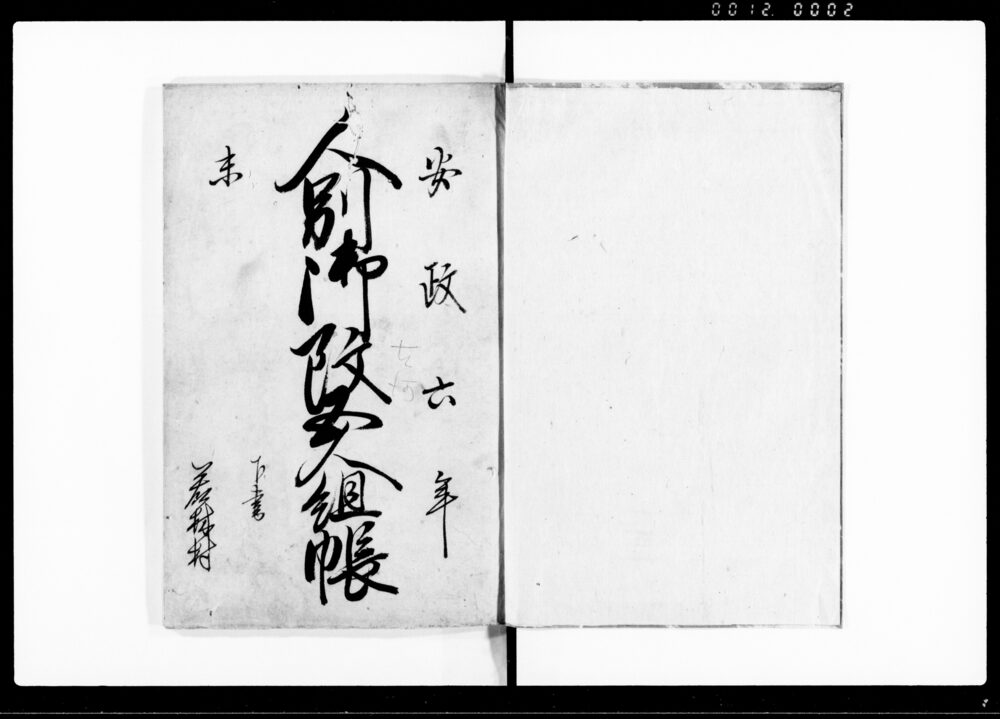 0012. 0002
安政六年
人別御改五人組帳
未
下書
若林村